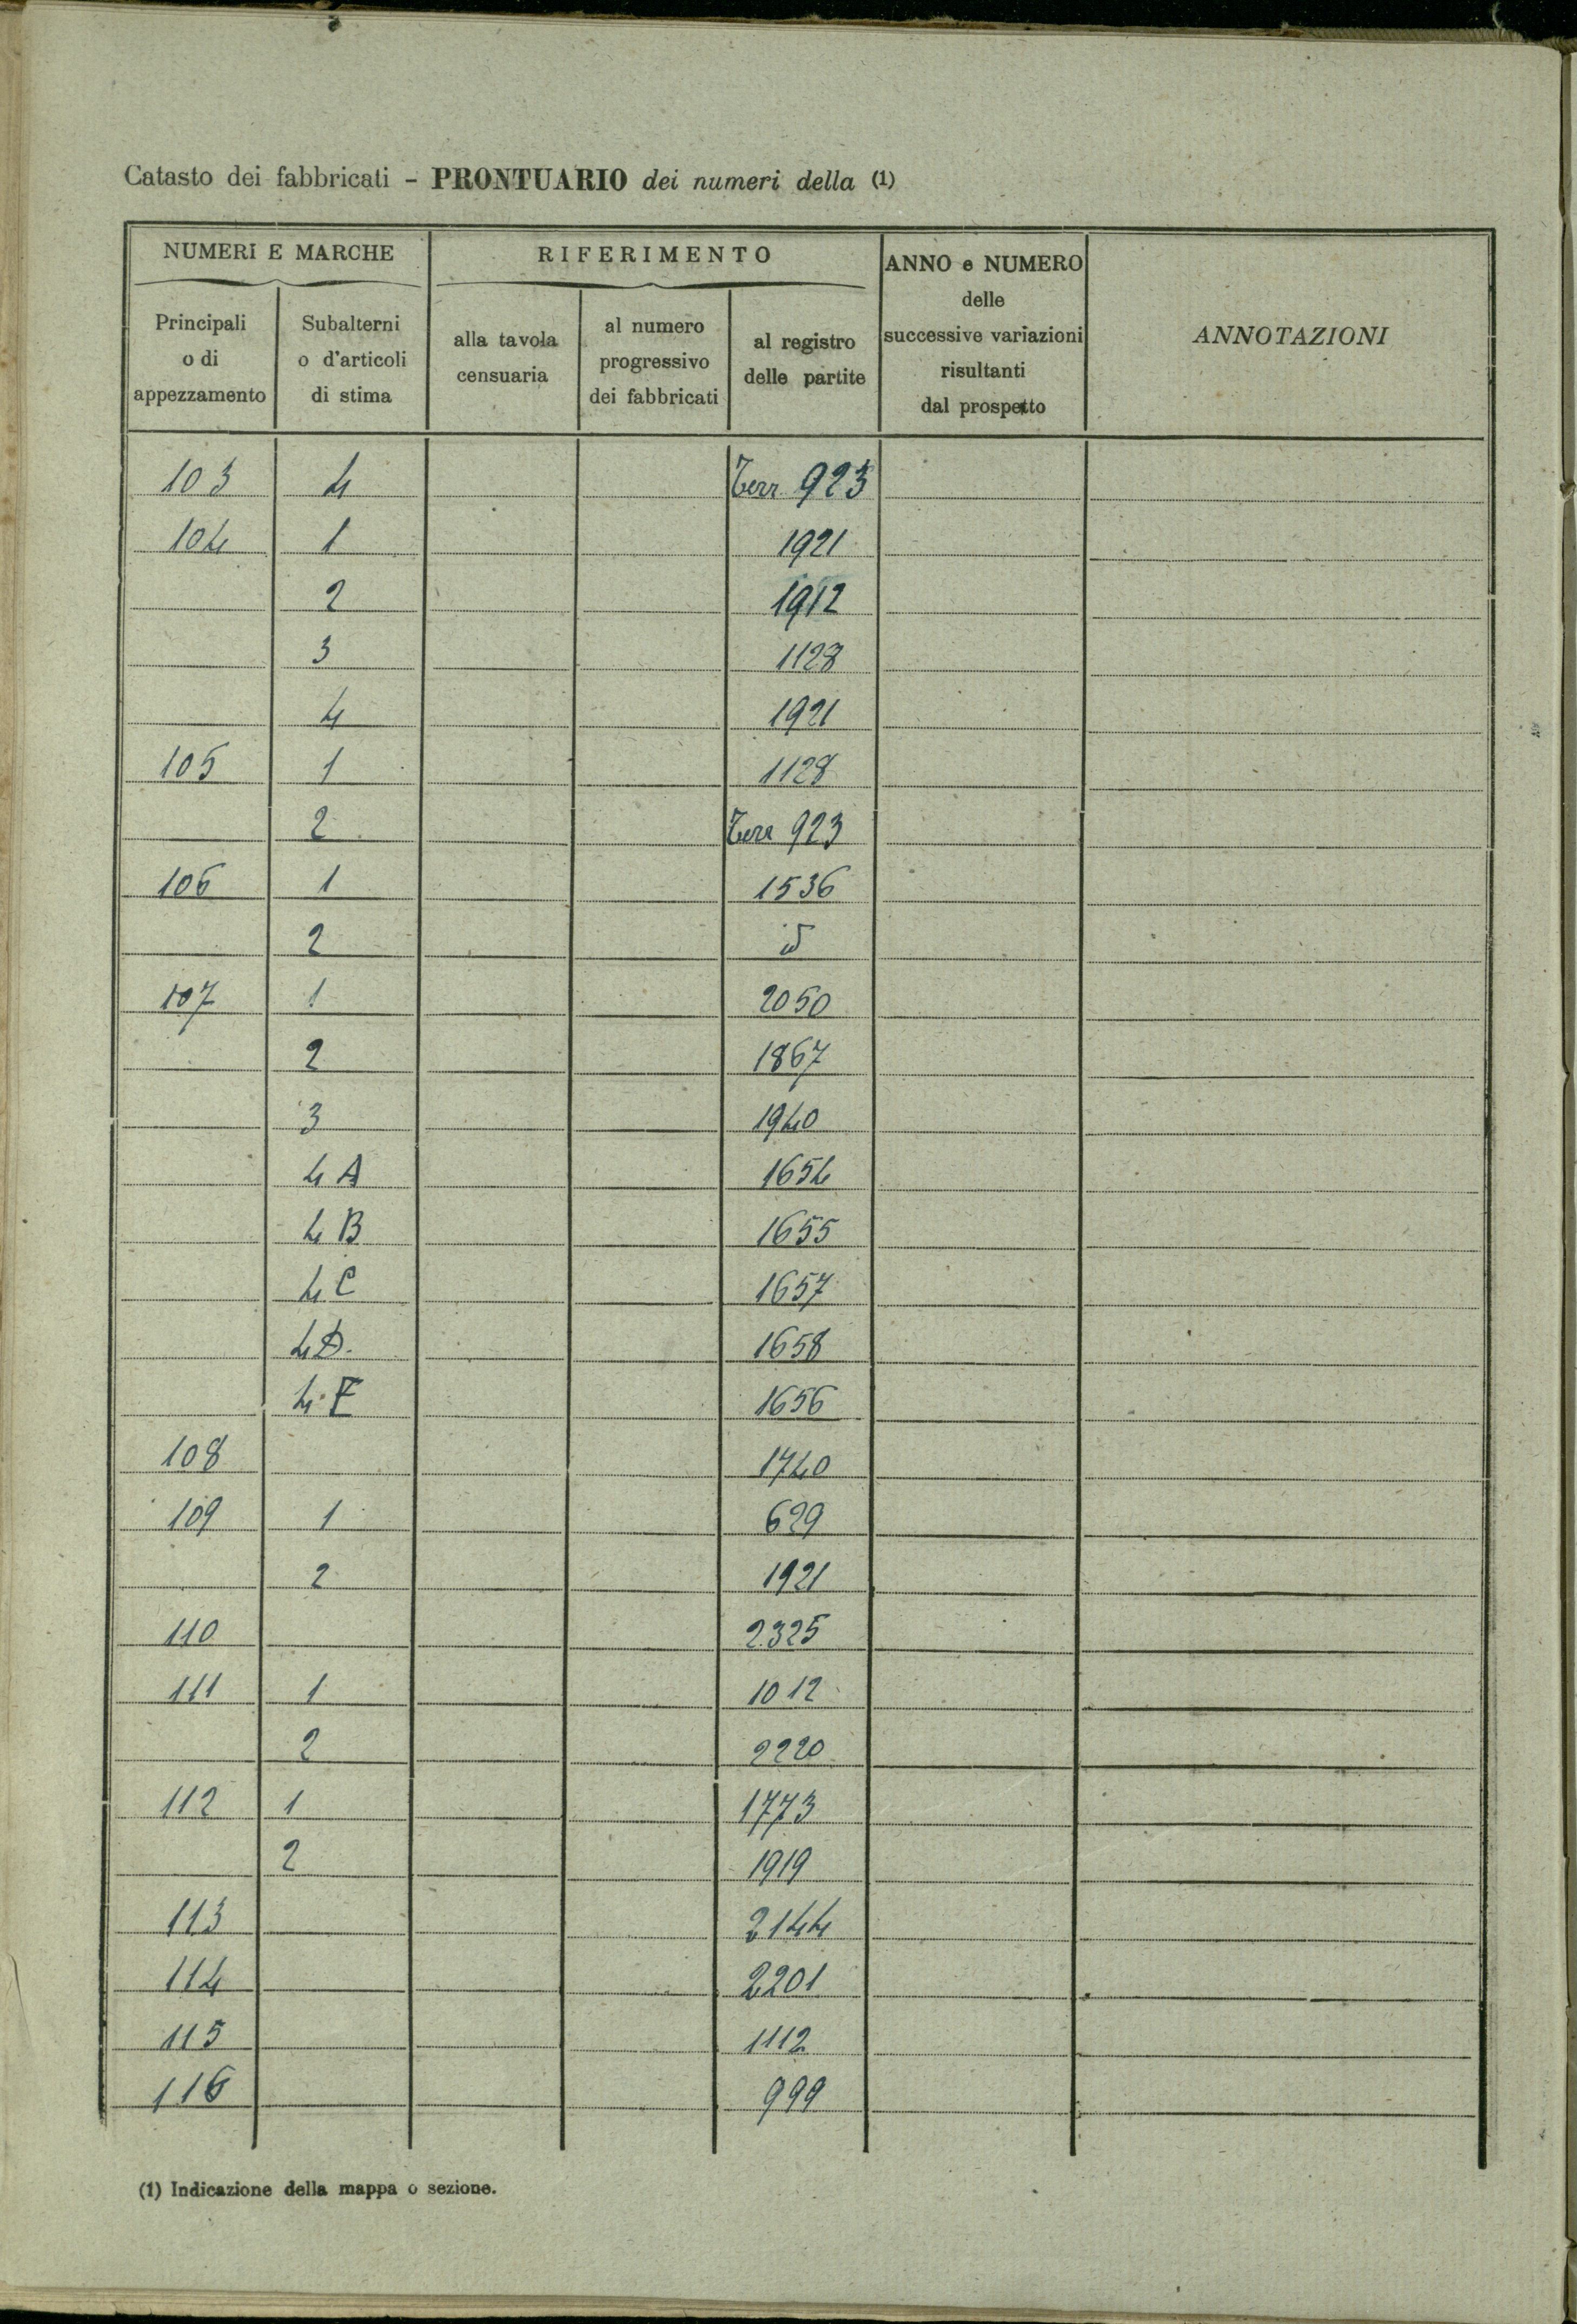 Catasto dei fabbricati - PRONTUARIO dei numeri della (1)
NUMERI E MARCHE
RIFERIMENTO
ANNO e NUMERO
delle
successive variazioni
risultanti
dal prospetto
ANNOTAZIONI
Principali
o di
appezzamento
Subalterni
o d'articoli
di stima
alla tavola
censuaria
al numero
progressivo
dei fabbricati
al registro
delle partite
103 4 Terr. 923
104 1 1921
2 1912
3 1128
4 1921
105 1 1128
2 Terr 923
106 1 1536
2 id
107 1 2050
2 1867
3 1940
4 A 1654
4 B 1655
4 C 1657
4 D. 1658
4 E 1656
108 1740
109 1 629
2 1921
110 2325
111 1 1012
2 2220
112 1 1773
2 1919
113 2144
114 2201
115 1112
116 999
(1) Indicazione della mappa o sezione.